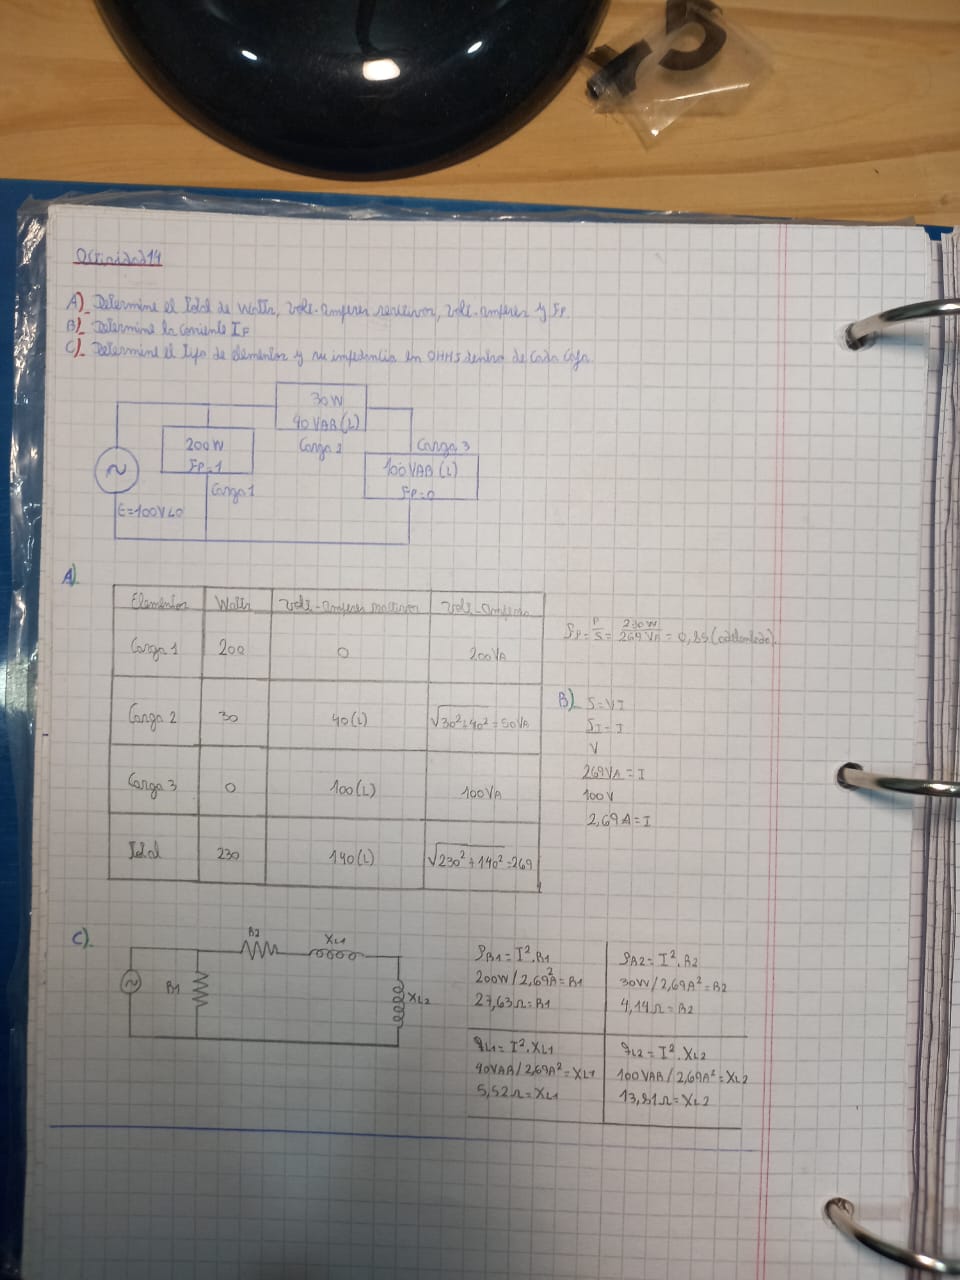 Actividad 14
A)_ Determine el total de Watts, Volt-amperes reactivos, Volt-amperes y Fp
B)_ Determine la corriente IF
C)_ Determine el tipo de elementos y su impedancia en OHHS dentro de cada caja.
30W
40 VAR (L)
Carga 2
200W
Fp=1
Carga 1
Carga 3
100VAR (L)
Fp=0
E=100V∠0
A)
Elementos Watts Volt-amperes reactivos Volt-amperes
Carga 1 200 0 200VA
Carga 2 30 40(L) √30²+40²=50VA
Carga 3 0 100(L) 100VA
Total 230 140(L) √230²+140²=269
Fp=P/S=230W/269VA=0,85(adelantado).
B)_ S=VI
S=I
V
269VA=I
100V
2,69A=I
C)
R2
XL1
R1
XL2
PR1=I².R1
200W/2,69²A=R1
27,63Ω=R1
PR2=I².R2
30W/2,69A²=R2
4,14Ω=R2
qL1=I².XL1
40VAR/2,69A²=XL1
5,52Ω=XL1
qL2=I².XL2
100VAR/2,69A²=XL2
13,81Ω=XL2